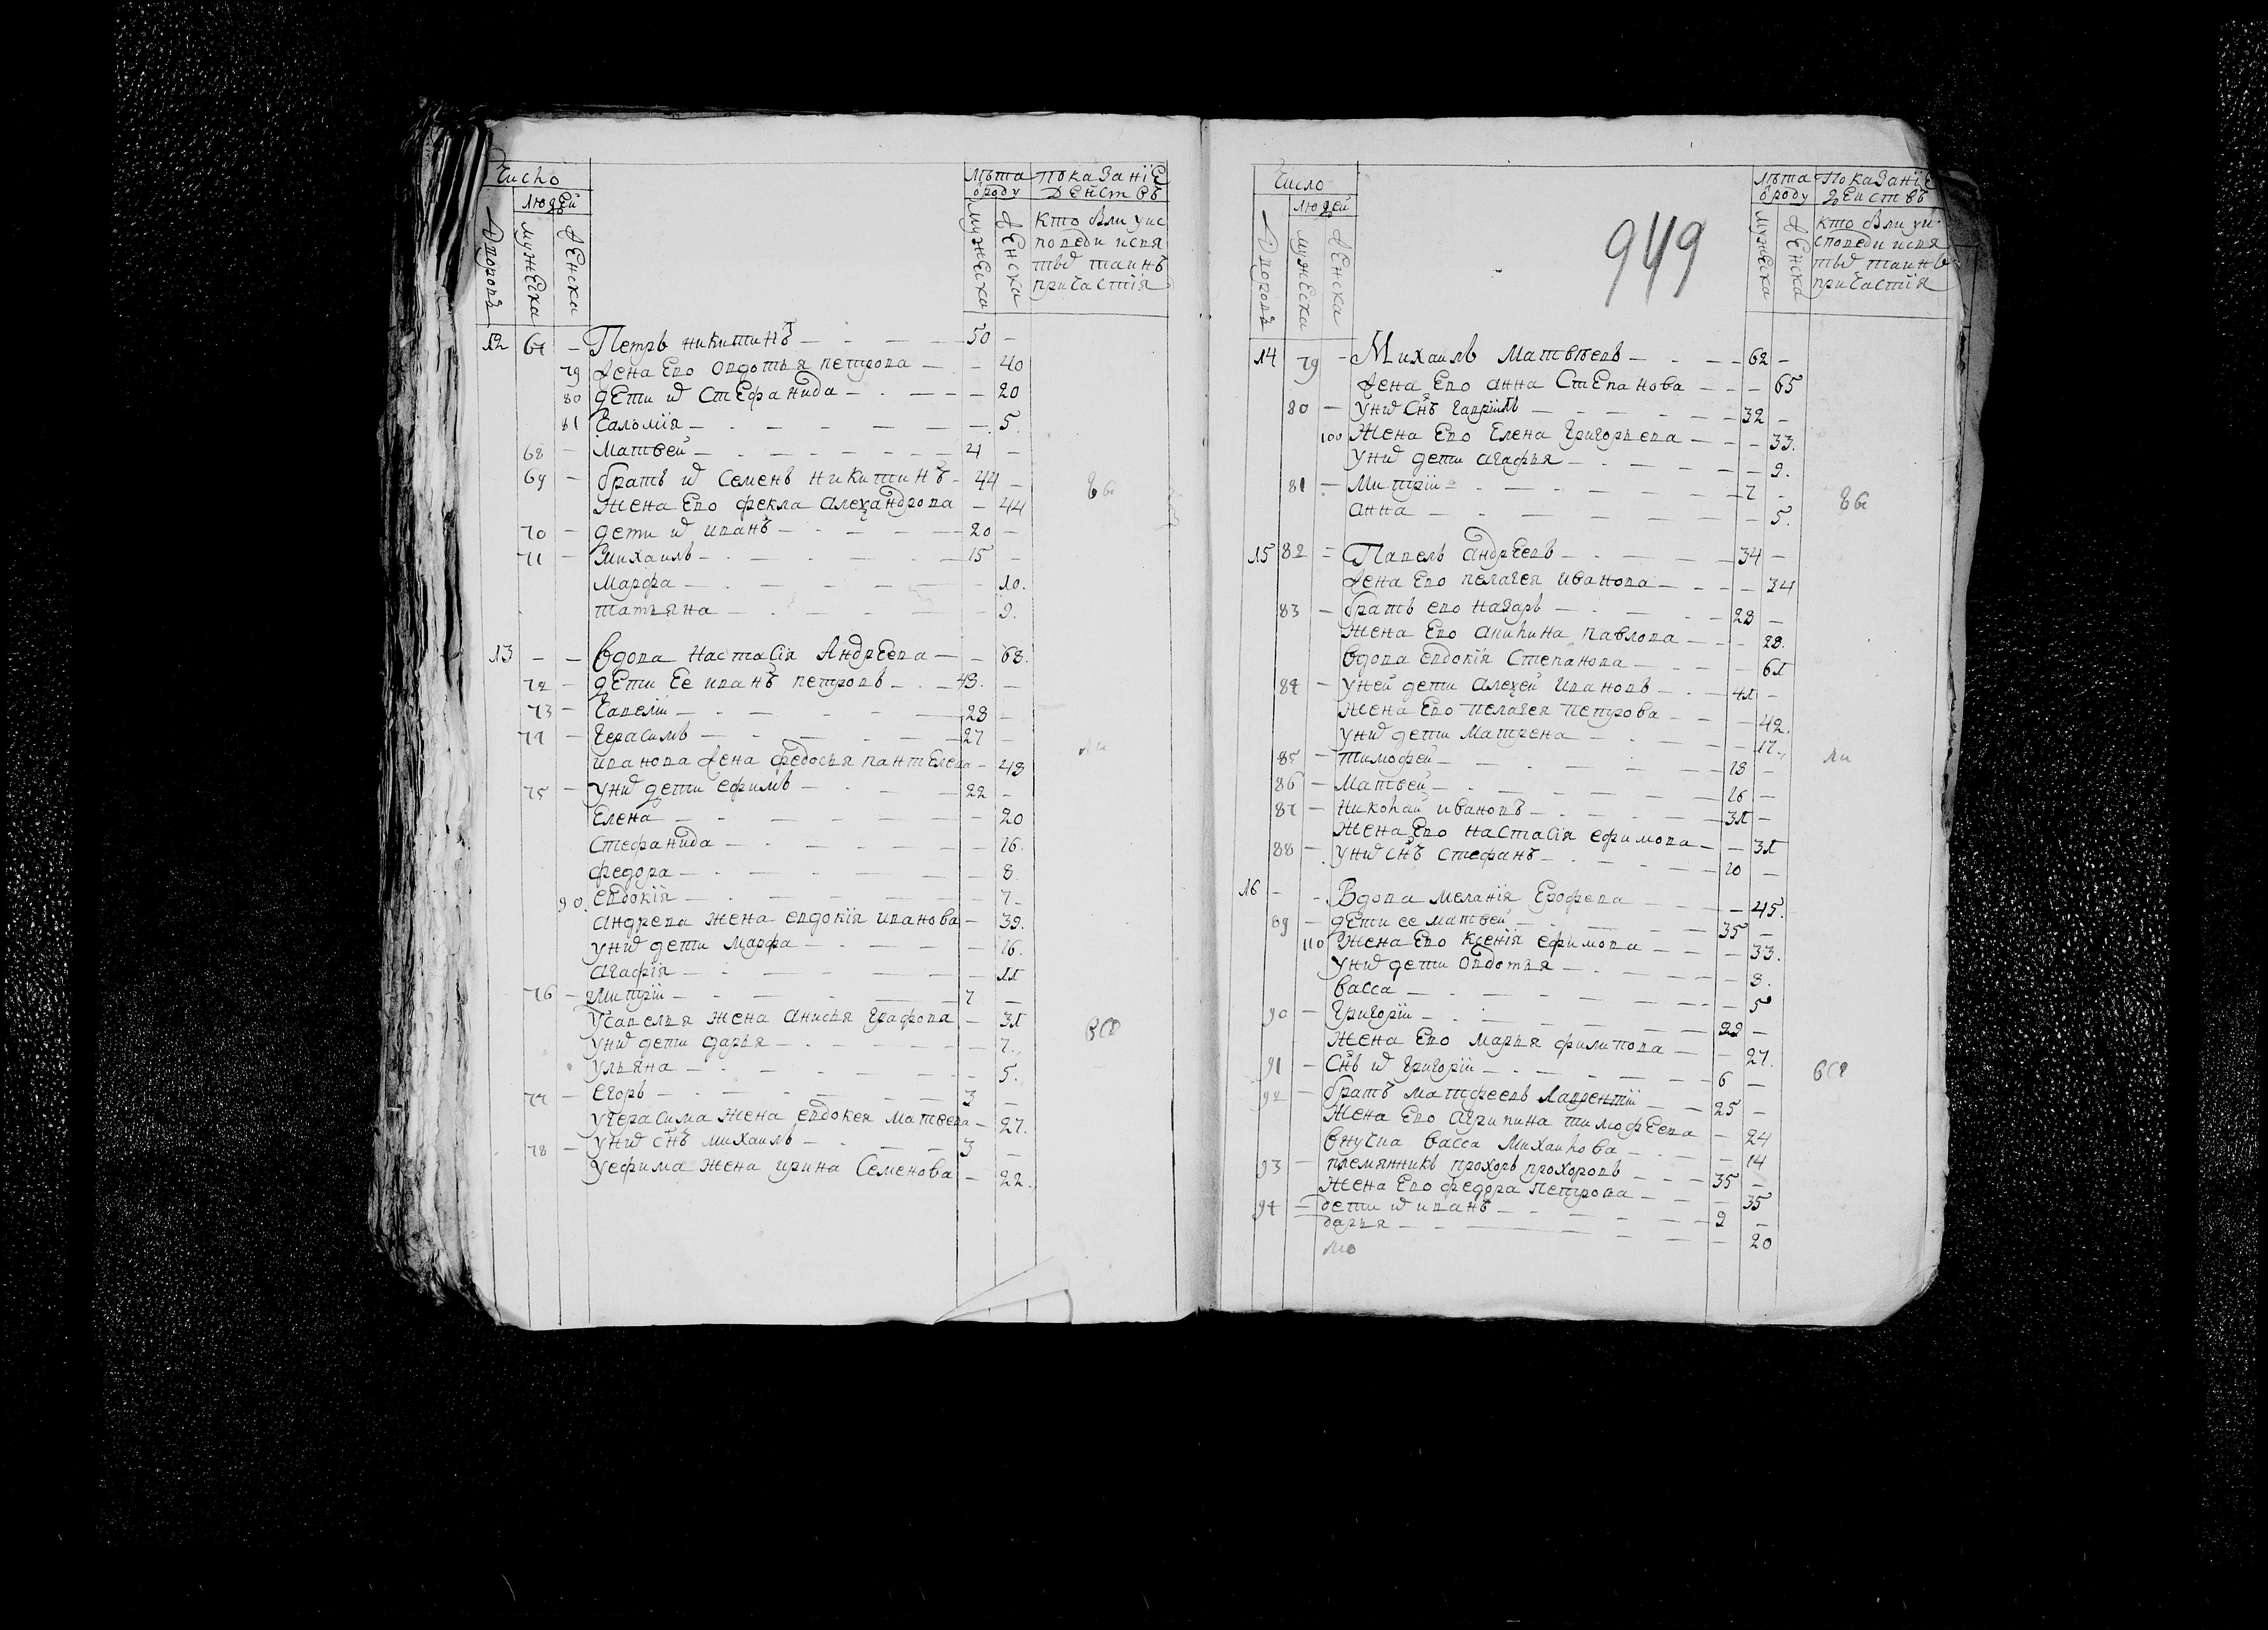 Число
людей
Дворовъ
мужеска
женска
лѣта
ѿроду
мужеска
женска
показаніе
действъ
кто были уис
поведи исвя
тыхъ таинъ
причастія
12 67 – Петръ никитинъ – 50 –
79 жена Ево овдотья петрова – 40
80 дети их Стефанида – 20
81 Саломія – 5.
68 – Матвей – 4 –
69 – братъ их Семенъ никитинъ – 44 –
жена Ево фекла алеѯандрова – 44
70 – дети их иванъ – 20 –
71 – михаилъ – 15 –
марфа – 10.
татьяна – 9.
вы
13 – – вдова Настасія Андреева – 68.
72 – дети Ее иванъ петровъ – 48. –
73 – Савелій – 28 –
74 – Герасимъ – 27 –
иванова жена федосья пантелева – 48
75 – унихъ дети ефимъ – 22 –
Елена – 20
Стефанида – 16.
федора – 8.
90. евдокія – 7 –
андрева жена евдокія иванова – 39.
унихъ дети марфа – 16.
агафія – 11
76 – митрій – 7 –
Усавелья жена анисья Графова – 31
унихъ дети дарья – 7.
ульяна – 5.
77 – егоръ – 3 –
угерасима жена евдокея матвева – 27.
78 – унихъ снъ михаилъ – 3 –
уефима жена ирина Семенова – 22.
ли
всѣ
949
Число
людей
Дворовъ
мужеска
женска
лѣта
ѿроду
мужеска
женска
Показаніе
действъ
кто были уи
споведи исвя
тыхъ таинъ
причастія
14 79 – Михаилъ Матвѣевъ – 62 –
жена Ево анна Степанова – 65
80 – унихъ снъ гаврилъ – 32 –
100 жена Ево Елена Григорьева – 33.
унихъ дети агафья – 9.
81 – Митрій – 7 –
анна – 5.
вы
15 82 – Павелъ андреевъ – 34 –
жена Ево пелагея иванова – 34
83 – братъ ево назаръ – 28 –
жена Ево акилина павлова – 28.
вдова евдокія Степанова – 61
84 – уней дети алеѯей ивановъ – 41 –
жена Ево пелагея петрова – 42.
унихъ дети Матрена – 17.
85 – тимофей – 18 –
86 – Матвей – 16 –
87 – николай ивановъ – 31 –
жена Ево настасія ефимова – 31
88 – унихъ снъ стефанъ – 10 –
ли
16 – – Вдова меланія Ерофева – 45.
89 – дети ее матвей – 35 –
110 жена Ево ксенія ефимова – 33.
унихъ дети овдотья – 8.
васса – 5
90 – Григорій – 22 –
жена Ево марья филипова – 27.
91 – снъ их григорій – 6 –
92 – братъ матфеевъ лаврентій – 25 –
жена Ево агрипина тимофеева – 24
внучка васса михайлова – 14
93 – племянникъ прохоръ прохоровъ – 35 –
жена Ево федора петрова – 35
94 – дети их иванъ – 9 –
дарья – 20
всѣ